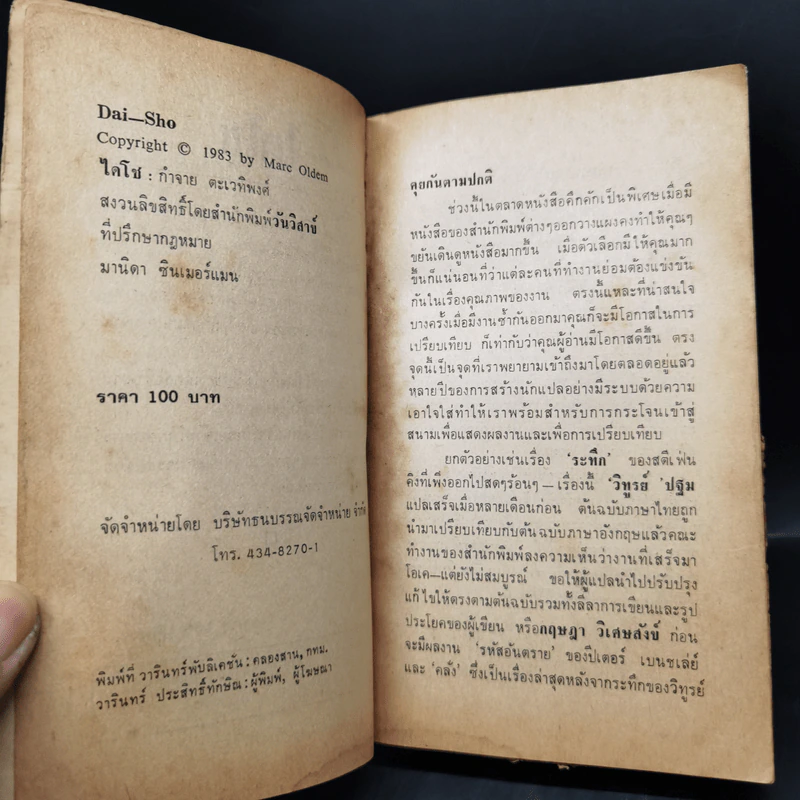 Dai—Sho
Copyright © 1983 by Marc Oldem
ไดโช : กำจาย ตะเวทิพงศ์
สงวนลิขสิทธิ์โดยสำนักพิมพ์วันวิสาข์
ที่ปรึกษากฎหมาย
มานิดา ซินเมอร์แมน
ราคา 100 บาท
จัดจำหน่ายโดย บริษัทธนบรรณจัดจำหน่าย จำกัด
โทร. 434-8270-1
พิมพ์ที่ วารินทร์พับลิเคชัน : คลองสาน, กทม.
วารินทร์ ประสิทธิ์ทักษิณ : ผู้พิมพ์, ผู้โฆษณา
คุยกันตามปกติ
ช่วงนี้ในตลาดหนังสือคึกคักเป็นพิเศษเมื่อมี
หนังสือของสำนักพิมพ์ต่างๆออกวางแผงคงทำให้คุณๆ
ขยันเดินดูหนังสือมากขึ้น เมื่อตัวเลือกมีให้คุณมาก
ขึ้นก็แน่นอนที่ว่าแต่ละคนที่ทำงานย่อมต้องแข่งขัน
กันในเรื่องคุณภาพของงาน ตรงนี้แหละที่น่าสนใจ
บางครั้งเมื่อมีงานซ้ำกันออกมาคุณก็จะมีโอกาสในการ
เปรียบเทียบ ก็เท่ากับว่าคุณผู้อ่านมีโอกาสดีขึ้น ตรง
จุดนี้เป็นจุดที่เราพยายามเข้าถึงมาโดยตลอดอยู่แล้ว
หลายปีของการสร้างนักแปลอย่างมีระบบด้วยความ
เอาใจใส่ทำให้เราพร้อมสำหรับการกระโจนเข้าสู่
สนามเพื่อแสดงผลงานและเพื่อการเปรียบเทียบ
ยกตัวอย่างเช่นเรื่อง ‘ระทึก’ ของสตีเฟ่น
คิงที่เพิ่งออกไปสดๆร้อนๆ — เรื่องนี้ ‘วิทูรย์ ’ปฐม
แปลเสร็จเมื่อหลายเดือนก่อน ต้นฉบับภาษาไทยถูก
นำมาเปรียบเทียบกับต้นฉบับภาษาอังกฤษแล้วคณะ
ทำงานของสำนักพิมพ์ลงความเห็นว่างานที่เสร็จมา
โอเค—แต่ยังไม่สมบูรณ์ ขอให้ผู้แปลนำไปปรับปรุง
แก้ไขให้ตรงตามต้นฉบับรวมทั้งลีลาการเขียนและรูป
ประโยคของผู้เขียน หรือกฤษฎา วิเศษสังข์ ก่อน
จะมีผลงาน ‘รหัสอันตราย’ ของปีเตอร์ เบนชเลย์
และ ‘คลัง’ ซึ่งเป็นเรื่องล่าสุดหลังจากระทึกของวิทูรย์